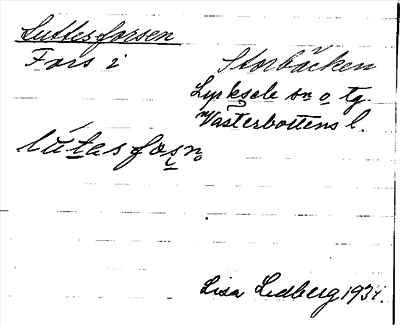 Lutterforsen
Fors i Storbäcken
Lycksele sn o tg.
Västerbottens l.
lútasfosn
Lisa Lidberg 1934.